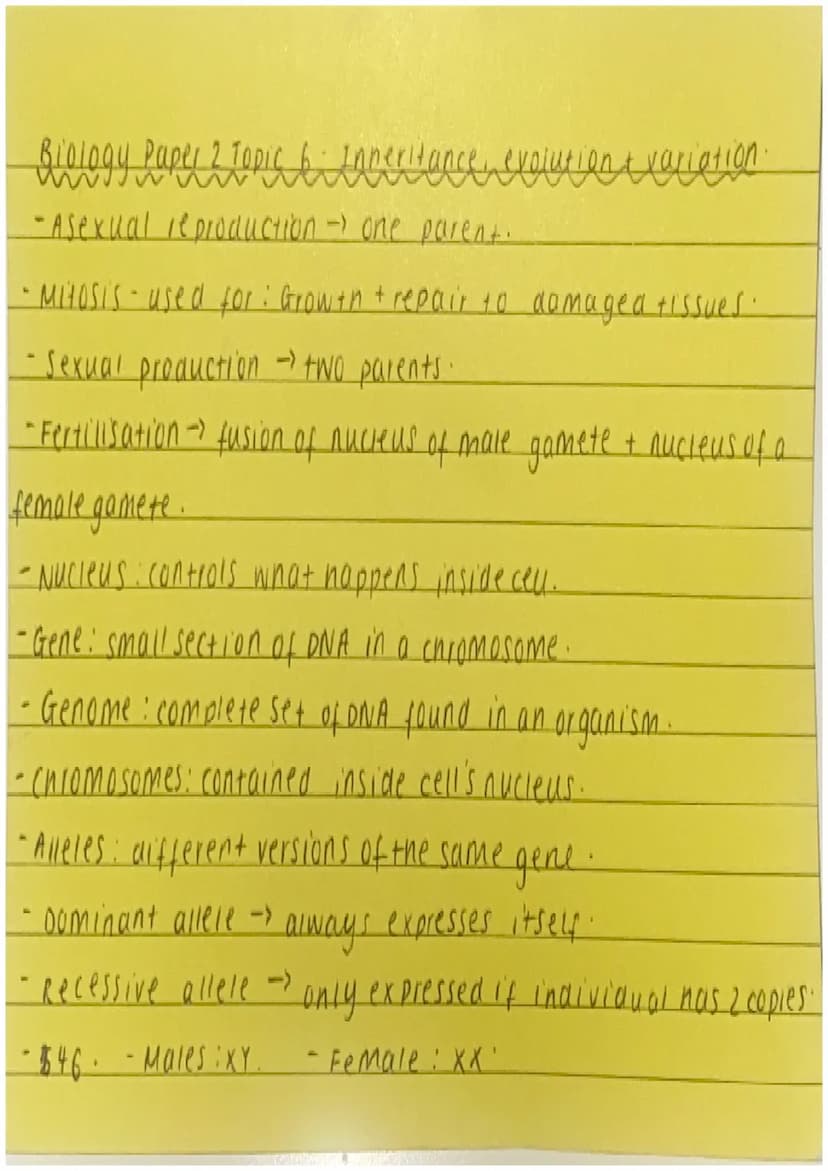 Biology Paper 2 Topic 6: Inheritance, evolution + variation.
- Asexual reproduction → one parent.
- Mitosis - used for: Growth + repair to damaged tissues.
- Sexual production → two parents.
- Fertilisation → fusion of nucleus of male gamete + nucleus of a
female gamete.
- Nucleus: controls what happens inside cell.
- Gene: small section of DNA in a chromosome.
- Genome: complete set of DNA found in an organism.
- Chromosomes: contained inside cell's nucleus.
- Alleles: different versions of the same gene.
- Dominant allele → always expresses itself.
- Recessive allele → only expressed if individual has 2 copies.
- 46. - Males: XY. - Female: XX.